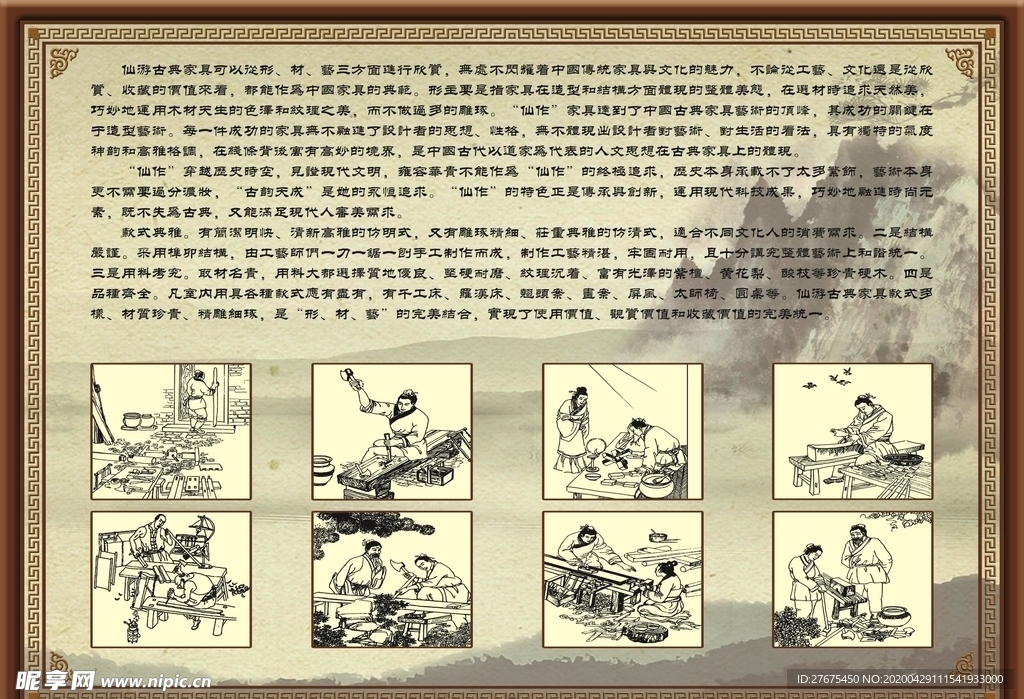 仙游古典家具可以從形、材、藝三方面進行欣賞，無處不閃耀着中國傳統家具與文化的魅力，不論從工藝、文化還是從欣
賞、收藏的價值來看，都能作爲中國家具的典範。形主要是指家具在造型和結構方面體現的整體美感，在選材時追求天然美，
巧妙地運用木材天生的色澤和紋理之美，而不做過多的雕琢。“仙作”家具達到了中國古典家具藝術的頂峰，其成功的關鍵在
于造型藝術。每一件成功的家具無不融進了設計者的思想、性格，無不體現出設計者對藝術、對生活的看法，具有獨特的氣度
神韵和高雅格調，在綫條背後寓有高妙的境界，是中國古代以道家爲代表的人文思想在古典家具上的體現。
“仙作”穿越歷史時空，見證現代文明，雍容華貴不能作爲“仙作”的終極追求，歷史本身承載不了太多繁飾，藝術本身
更不需要過分濃妝，“古韵天成”是她的永恒追求。“仙作”的特色正是傳承與創新，運用現代科技成果，巧妙地融進時尚元
素，既不失爲古典，又能滿足現代人審美需求。
款式典雅。有簡潔明快、清新高雅的仿明式，又有雕琢精細、莊重典雅的仿清式，適合不同文化人的消費需求。二是結構
嚴謹。采用榫卯結構，由工藝師們一刀一鋸一刨手工制作而成，制作工藝精湛，牢固耐用，且十分講究整體藝術上和諧統一。
三是用料考究。取材名貴，用料大都選擇質地優良、堅硬耐磨、紋理沉着、富有光澤的紫檀、黄花梨、酸枝等珍貴硬木。四是
品種齊全。凡室内用具各種款式應有盡有，有千工床、羅漢床、翹頭案、畫案、屏風、太師椅、圓桌等。仙游古典家具款式多
樣、材質珍貴、精雕細琢，是“形、材、藝”的完美結合，實現了使用價值、觀賞價值和收藏價值的完美統一。
昵享网 www.nipic.cn
ID:27675450 NO:20200429111541933000